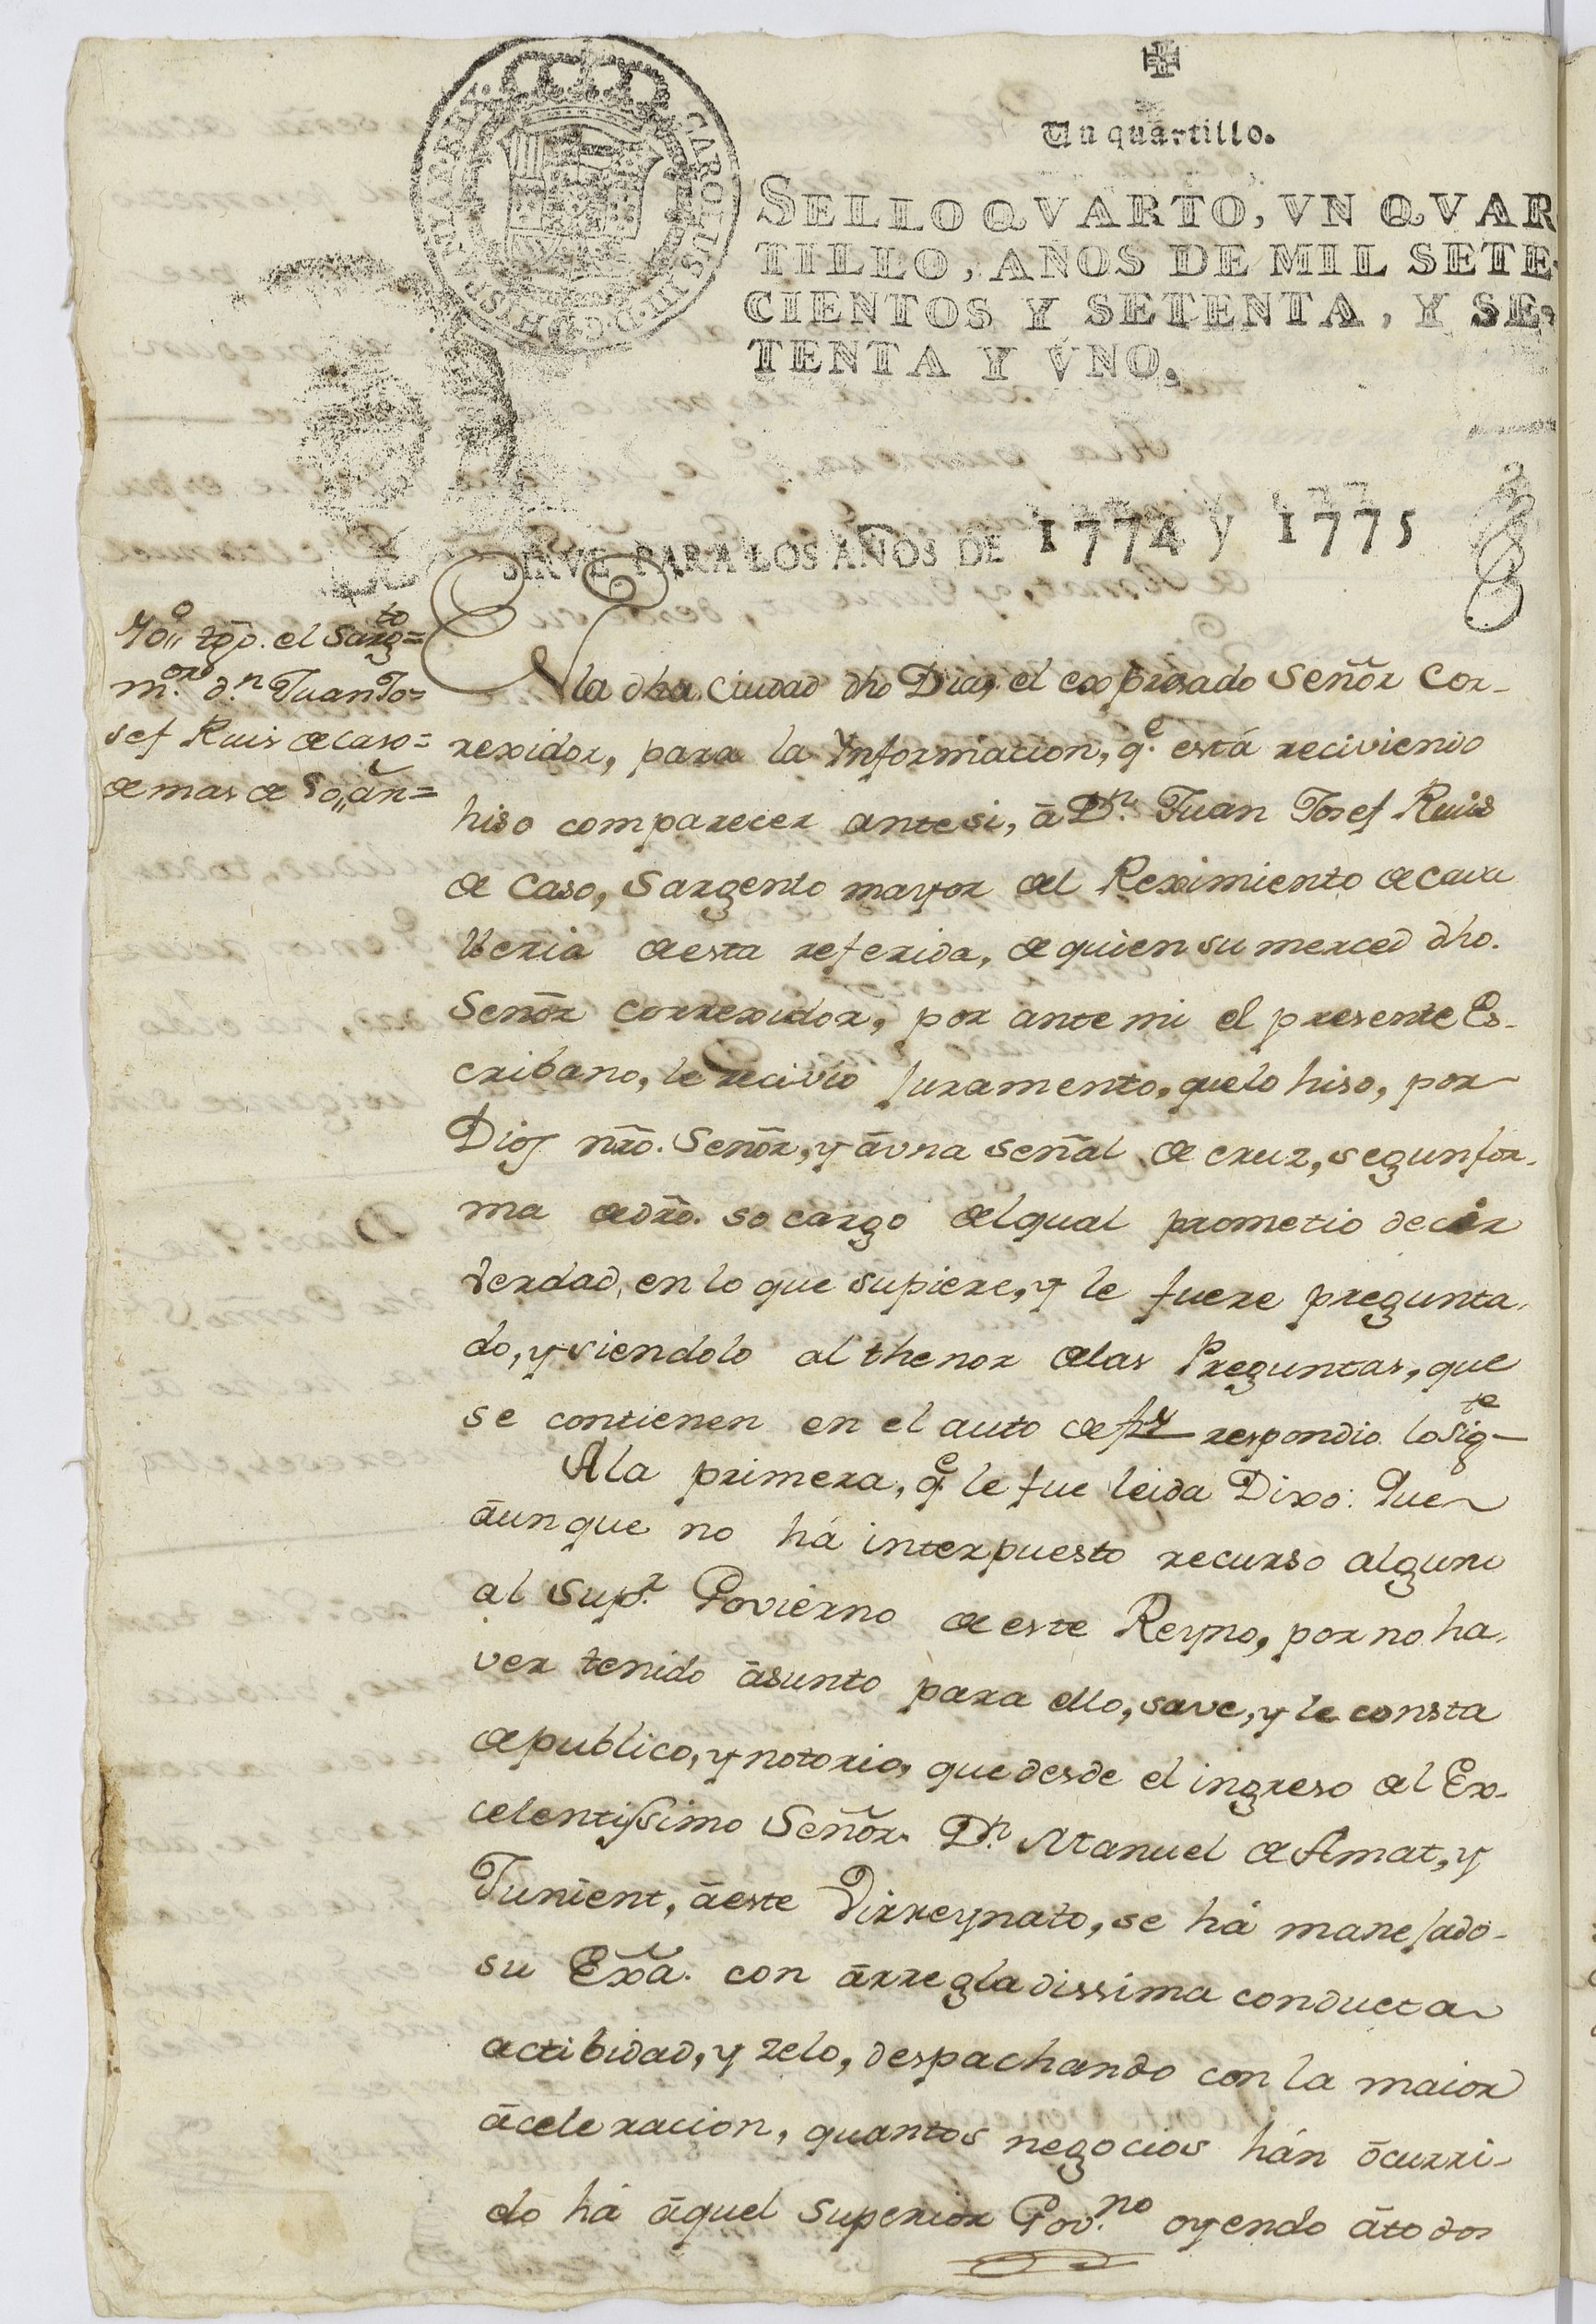 Un quartillo.
SELLO QVARTO, VN QVAR
TILLO, AÑOS DE MIL SETE-
CIENTOS Y SETENTA, Y SE-
TENTA Y VNO.
SIRVE PARA LOS AÑOS DE 1774 y 1775
tgo. el Sargto=
mor. dn. Juan Jo=
sef Ruis de caso=
de mas de 50,, añ=
EN la dha. Ciudad dho Dia, el expresado Señor Cor-
rexidor, para la Ynformacion, qe. está reciviendo
hiso comparecer ante si, á Dn. Juan Josef Ruis
de Caso, Sargento mayor del Reximiento de cava
lleria de esta referida, de quien su merced dho.
Señor Correxidor, por ante mi el presente Es-
cribano, le recivio juramento, que lo hiso, por
Dios nro. Señor, y á vna señal de cruz, segun for-
ma de dro. so cargo del qual prometio decir
verdad, en lo que supiere, y le fuere pregunta-
do, y siendolo al thenor de las Preguntas, que
se contienen en el auto de respondio lo sigte
A la primera, qe. le fue leida Dixo: Que
áunque no há interpuesto recurso alguno
al Supr. Govierno de este Reyno, por no ha-
ver tenido ásunto para ello, save, y le consta
de publico, y notorio, que desde el ingreso del Ex-
celentissimo Señor Dn. Manuel de Amat, y
Junient, á este Virreynato, se há manejado
su Exa. con árregladissima conducta
actibidad, y zelo, despachando con la maior
áceleracion, quantos negocios hán ócurri-
do há áquel Superior Govno. oyendo á todos